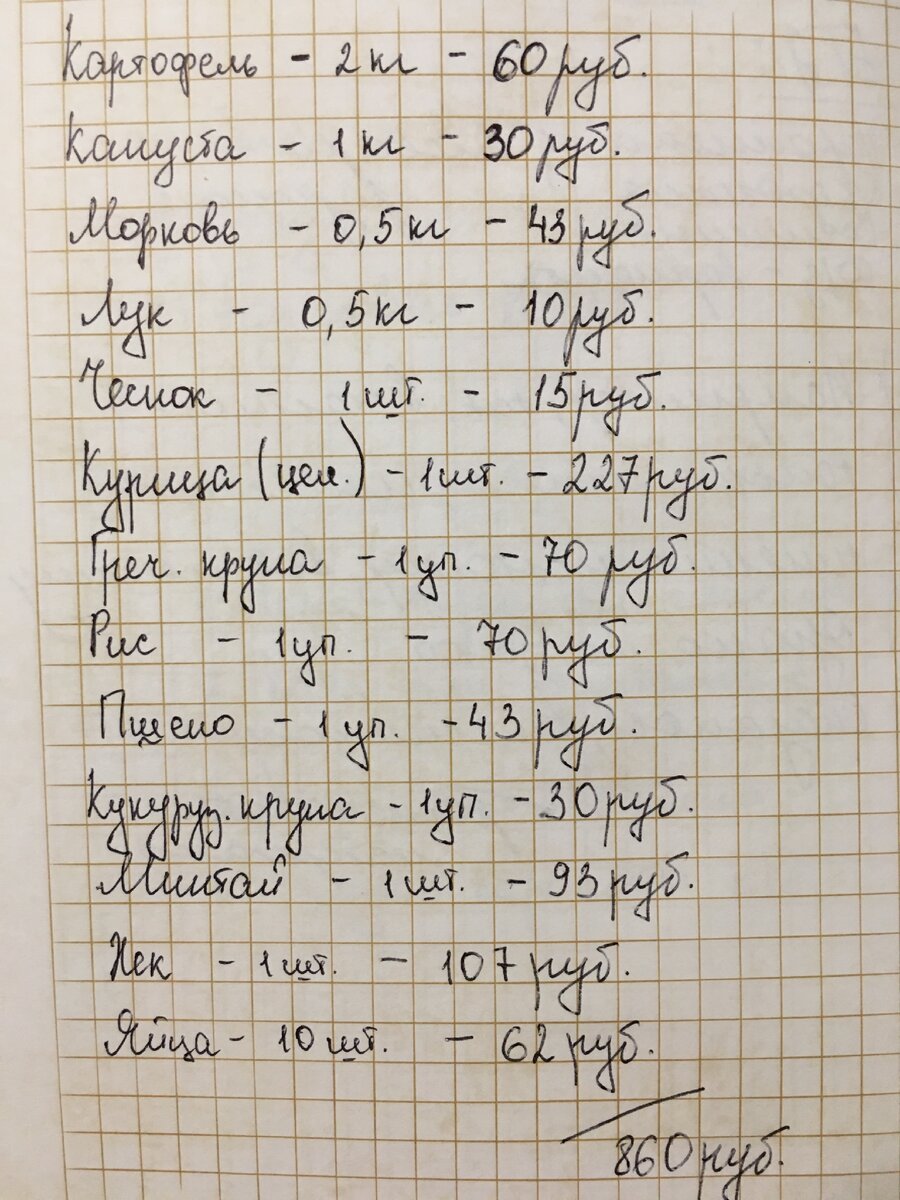 Картофель - 2 кг - 60 руб.
Капуста - 1 кг - 30 руб.
Морковь - 0,5 кг - 43 руб.
Лук - 0,5 кг - 10 руб.
Чеснок - 1 шт. - 15 руб.
Курица (цел.) - 1 шт. - 227 руб.
Греч. крупа - 1 уп. - 70 руб.
Рис - 1 уп. - 70 руб.
Пшено - 1 уп. - 43 руб.
Кукуруз. крупа - 1 уп. - 30 руб.
Минтай - 1 шт. - 93 руб.
Хек - 1 шт. - 107 руб.
Яйца - 10 шт. - 62 руб.
860 руб.